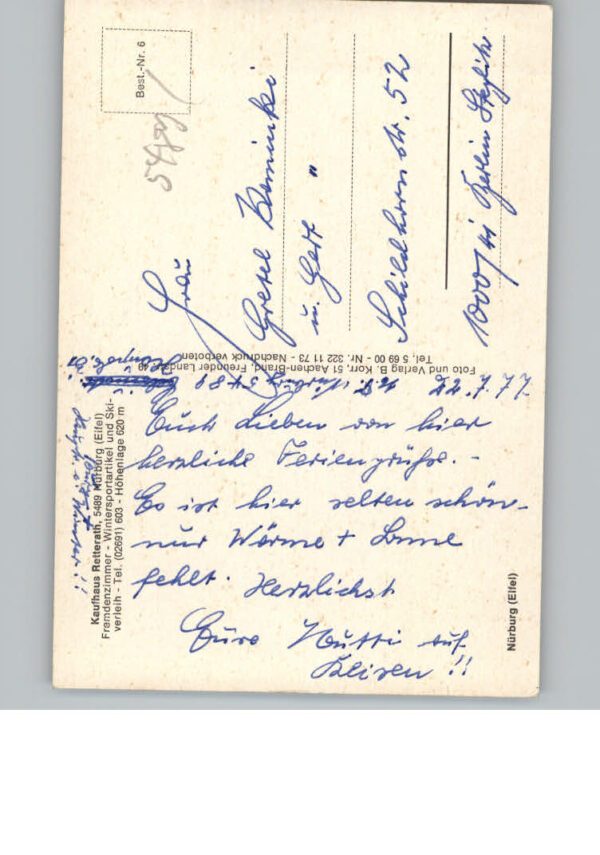 Kaufhaus Retterath, 5489 Nürburg (Eifel)
Fremdenzimmer - Wintersportartikel und Ski-
verleih - Tel. (02691) 603 - Höhenlage 620 m
22.7.77
Euch Lieben von hier
herzliche Feriengrüße. -
Es ist hier selten schön -
nur Wärme + Sonne
fehlt. Herzlichst
Eure Mutti auf
Reisen!!
Nürburg (Eifel)
Foto und Verlag B. Korr, 51 Aachen-Brand, Freunder Landstr. 49
Tel. 5 69 00 - Nr. 322 11 73 - Nachdruck verboten
Best.-Nr. 6
Frau
Gretel
u. Gert "
Schildhornstr. 52
1000/41 Berlin Steglitz